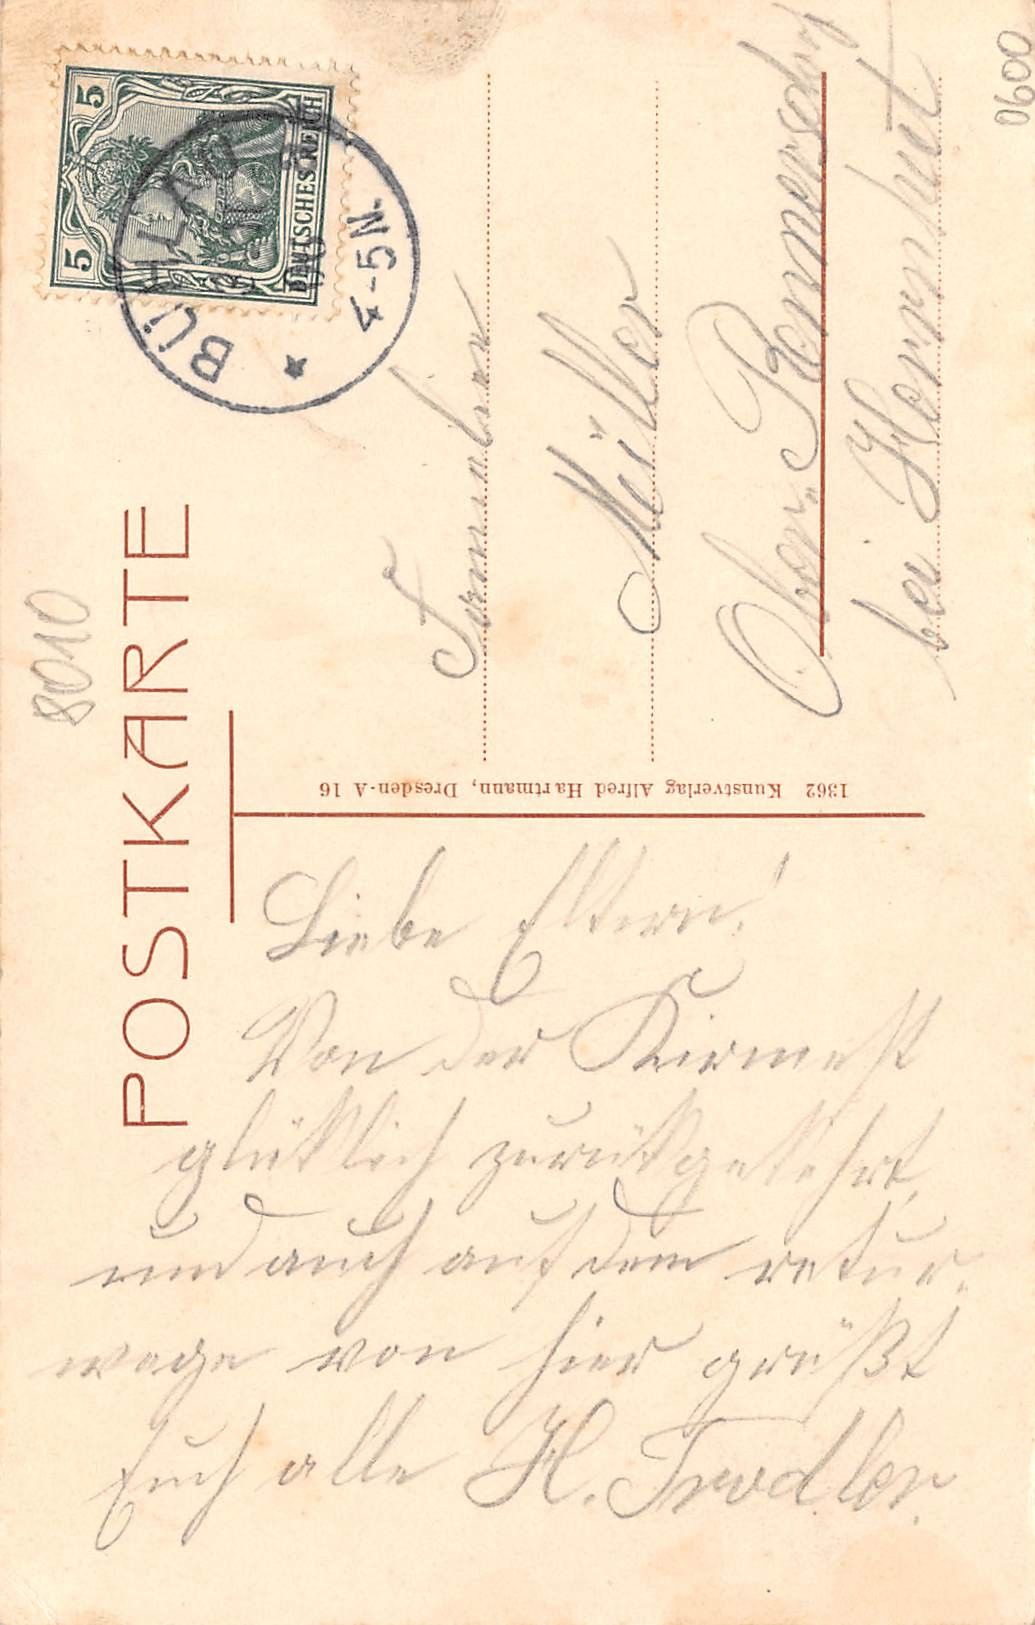 8010
POSTKARTE
5
5
DEUTSCHES REICH
BÜHLAU
4-5 N.
0600
Familien
Müller
Ober-Rennersdorf
bei Herrnhut
1362 Kunstverlag Alfred Hartmann, Dresden-A 16
Liebe Eltern!
Von der Kirmest
glücklich zurückgekehrt,
und auch auf dem retur-
wege von hier grüßt
Euch alle H. Trodler.